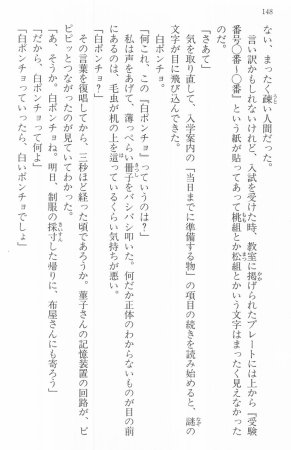 148
ない、まったく疎い人間だった。
言い訳かもしれないけれど、入試を受けた時、教室に掲げられたプレートには上から『受験
番号〇番〜〇番』という紙が貼ってあって桃組とか松組とかいう文字はまったく見えなかった
のだ。
「さあて」
気を取り直して、入学案内の「当日までに準備する物」の項目の続きを読み始めると、謎の
文字が目に飛び込んできた。
白ポンチョ。
「何これ、この『白ポンチョ』っていうのは？」
私は声をあげて、薄っぺらい冊子をバシバシ叩いた。何だか正体のわからないものが目の前
にあるのは、毛虫が机の上を這っているくらい気持ちが悪い。
その言葉を復唱してから、三秒ほど経った頃であろうか。菫子さんの記憶装置の回路が、ピ
ピピッとつながったのが見ていてわかった。
「あ、そうか。白ポンチョね。明日、制服の採寸した帰りに、布屋さんにも寄ろう」
「だから、白ポンチョって何よ」
「白ポンチョっていったら、白いポンチョでしょ」